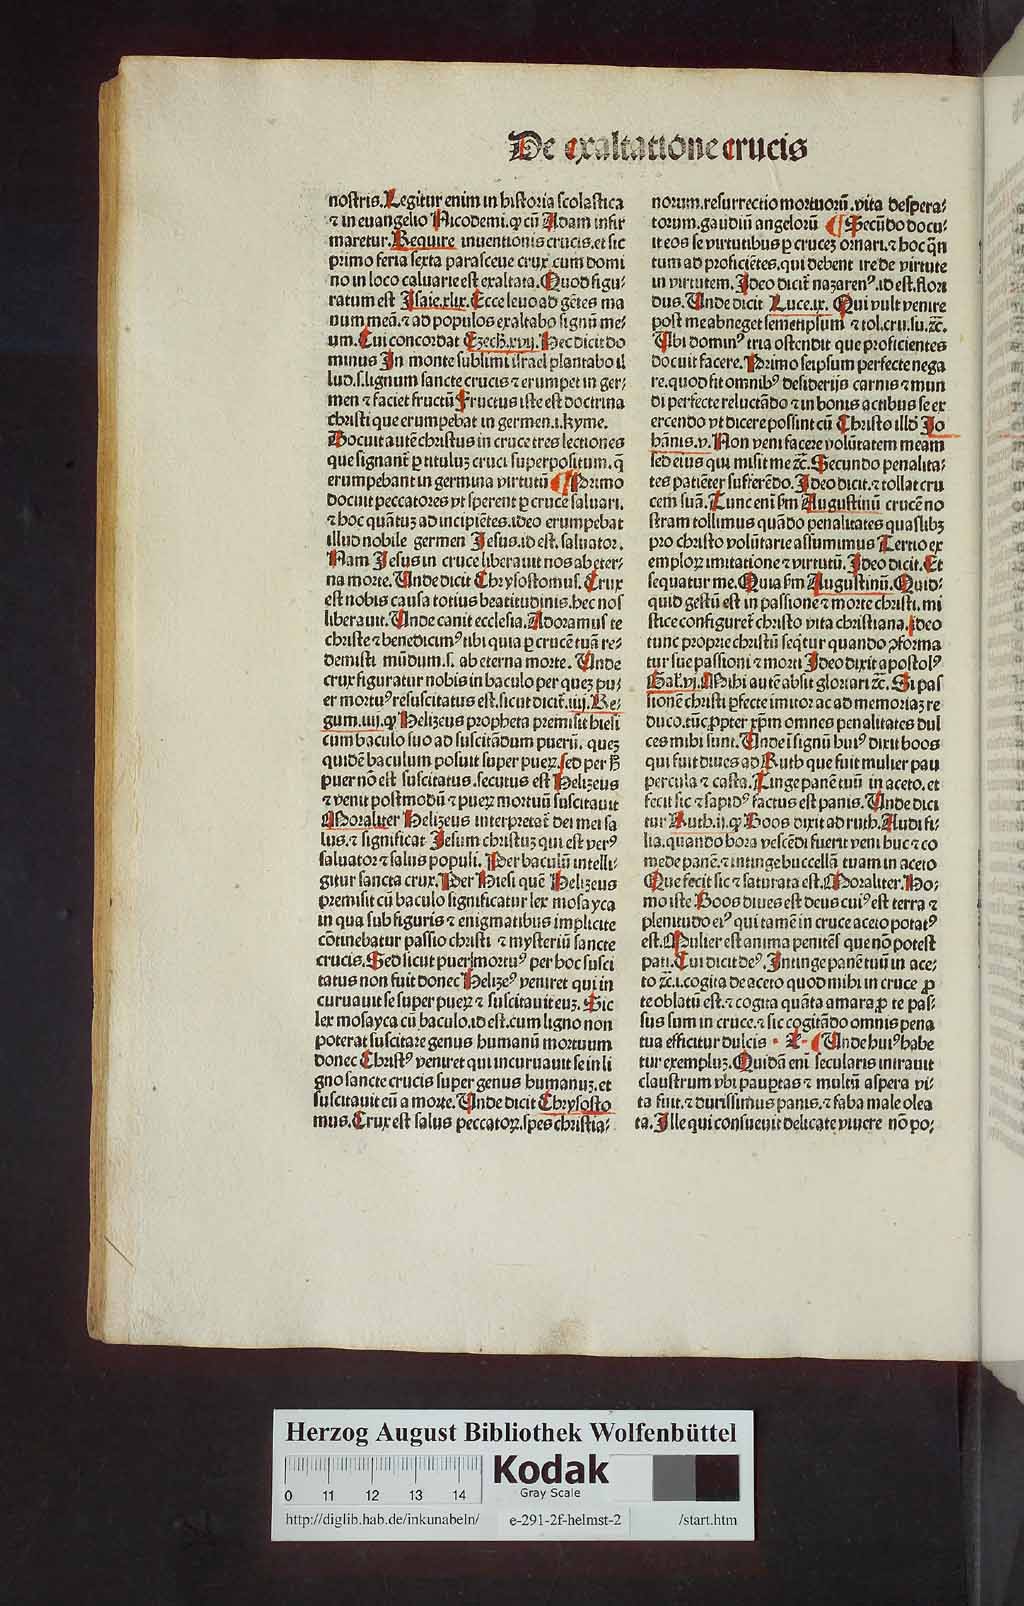 De exaltatione crucis
nostris. Legitur enim in historia scolastica
⁊ in euangelio Nicodemi. ꝙ cū Adam infir
maretur. Require inuentionis crucis. et sic
primo feria sexta parasceue crux cum domi
no in loco caluarie est exaltata. Quod figu⸗
ratum est Isaie. xlix. Ecce leuo ad gētes ma
num meā. ⁊ ad populos exaltabo signū me⸗
um. Cui concordat Ezech. xvij. Hec dicit do
minus In monte sublimi israel plantabo il
lud. s. lignum sancte crucis ⁊ erumpet in ger⸗
men ⁊ faciet fructū Fructus iste est doctrina
christi que erumpebat in germen. i. Ryme.
Docuit autē christus in cruce tres lectiones
que signant̄ ꝑ tituluꝫ cruci superpositum. q̄
erumpebant in germina virtutū ¶ Primo
docuit peccatores vt sperent ꝑ cruce saluari.
⁊ hoc quātuꝫ ad incipiētes. ideo erumpebat
illud nobile germen Jesus. id est. saluator.
Nam Jesus in cruce liberauit nos ab eter⸗
na morte. Unde dicit Chrysostomus. Crux
est nobis causa totius beatitudinis. hec nos
liberauit. Unde canit ecclesia. Adoramus te
christe ⁊ benedicimꝰ tibi quia ꝑ crucē tuā re⸗
demisti mūdum. s. ab eterna morte. Unde
crux figuratur nobis in baculo per queꝫ pu⸗
er mortuꝰ resuscitatus est. sicut dicit̄. iiij. Re⸗
gum. iiij. ꝙ Helizeus propheta premisit hiesi
cum baculo suo ad suscitādum puerū. queꝫ
quidē baculum posuit super pueꝝ. sed per hͦ
puer nō est suscitatus. secutus est Helizeus
⁊ venit postmodū ⁊ pueꝝ mortuū suscitauit
Moraliter Helizeus interpretat̄ dei mei sa
lus. ⁊ significat Jesum christuꝫ qui est verꝰ
saluator ⁊ salus populi. Per baculū intelli⸗
gitur sancta crux. Per Hiesi quē Helizeus
premisit cū baculo significatur lex mosayca
in qua sub figuris ⁊ enigmatibus implicite
cōtinebatur passio christi ⁊ mysteriū sancte
crucis. Sed sicut puer mortuꝰ per hoc susci
tatus non fuit donec Helizeꝰ veniret qui in
curuauit se super pueꝝ ⁊ suscitauit euꝫ. Sic
lex mosayca cū baculo. id est. cum ligno non
poterat suscitare genus humanū mortuum
donec Christꝰ veniret qui incuruauit se in li
gno sancte crucis super genus humanuꝫ. et
suscitauit eū a morte. Unde dicit Chrysosto
mus. Crux est salus peccatoꝝ. spes christia⸗
norum. resurrectio mortuorū. vita despera⸗
torum. gaudiū angelorū ¶ Secūdo docu⸗
it eos se virtutibus ꝑ cruceꝫ ornari. ⁊ hoc q̄n
tum ad proficiētes. qui debent ire de virtute
in virtutem. Ideo dicit̄ nazarenꝰ. id est. flori
dus. Unde dicit Luce. ix. Qui vult venire
post me abneget semetipsum ⁊ tol. cru. su. ⁊c̄.
Ubi dominꝰ tria ostendit que proficientes
docuit facere. Primo seipsum perfecte nega
re. quod fit omnibꝰ desiderijs carnis ⁊ mun
di perfecte reluctādo ⁊ in bonis actibus se ex
ercendo vt dicere possint cū Christo illud Jo
hānis. v. Non veni facere volūtatem meam
sed eius qui misit me ⁊c̄. Secundo penalita⸗
tes patiēter sufferēdo. Ideo dicit. ⁊ tollat cru
cem suā. Tunc eni ẜm Augustinū crucē no
stram tollimus quādo penalitates quaslibꝫ
pro christo volūtarie assumimus Tertio ex
emploꝝ imitatione ⁊ virtutū. Ideo dicit. Et
sequatur me. Quia ẜm Augustinū. Quid⸗
quid gestū est in passione ⁊ morte christi. mi
stice configuret̄ christo vita christiana. ideo
tunc proprie christū seqͥtur quando ꝯforma
tur sue passioni ⁊ morti Ideo dixit apostolꝰ
Gal. vj. Mihi autē absit gloriari ⁊c̄. Si pas
sionē christi ꝑfecte imitor ac ad memoriaꝫ re
duco. tūc ꝓpter xp̄m omnes penalitates dul
ces mihi sunt. Unde ī signū huiꝰ dixit boos
qui fuit diues ad Ruth que fuit mulier pau
percula ⁊ casta. Tinge panē tuū in aceto. et
fecit sic ⁊ sapidꝰ factus est panis. Unde dici
tur Ruth. ij. ꝙ Boos dixit ad ruth. Audi fi⸗
lia. quando hora vescēdi fuerit veni huc ⁊ co
mede panē. ⁊ intinge buccellā tuam in aceto
Que fecit sic ⁊ saturata est. Moraliter. Ho⸗
mo iste Boos diues est deus cuiꝰ est terra ⁊
plenitudo eiꝰ qui tamē in cruce aceto potatꝰ
est. Mulier est anima penitēs que nō potest
pati. Cui dicit deꝰ. Intinge panē tuū in ace⸗
to ⁊c̄. i. cogita de aceto quod mihi in cruce ꝓ
te oblatū est. ⁊ cogita quāta amara ꝓ te pas⸗
sus sum in cruce. ⁊ sic cogitādo omnis pena
tua efficitur dulcis · L · ¶ Unde huiꝰ habe
tur exempluꝫ. Quidā eni secularis intrauit
claustrum vbi pauptas ⁊ multū aspera vi⸗
ta fuit. ⁊ durissimus panis. ⁊ faba male olea
ta. Ille qui consueuit delicate viuere nō po⸗
Herzog August Bibliothek Wolfenbüttel
0 11 12 13 14
Kodak
Gray Scale
http://diglib.hab.de/inkunabeln/ e-291-2f-helmst-2 /start.htm